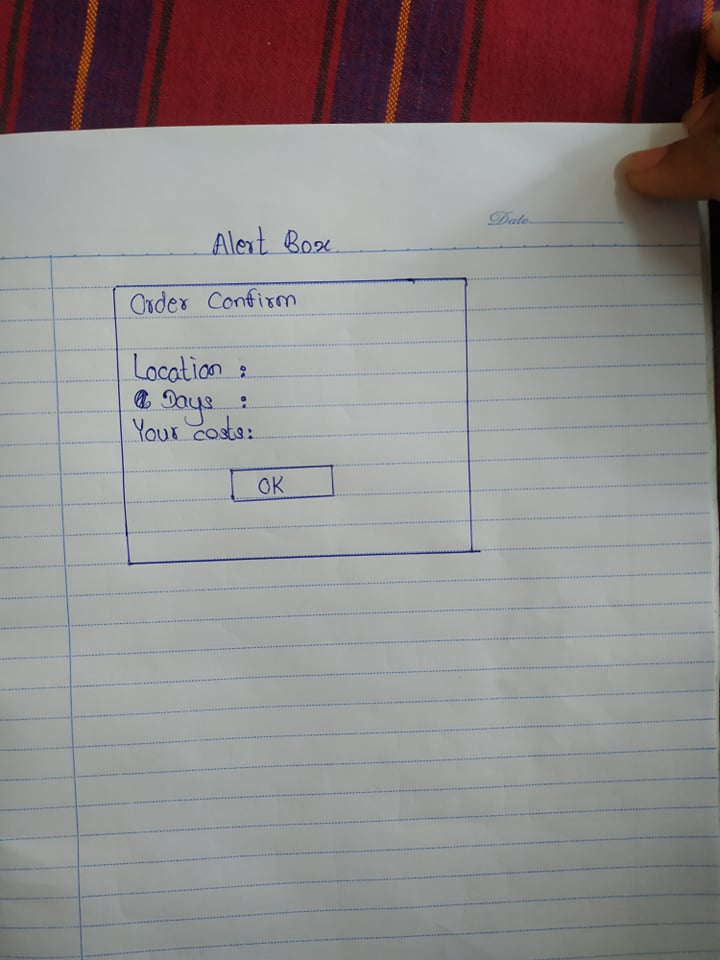 Date
Alert Box
Order Confirm
Location :
Days :
Your costs:
OK